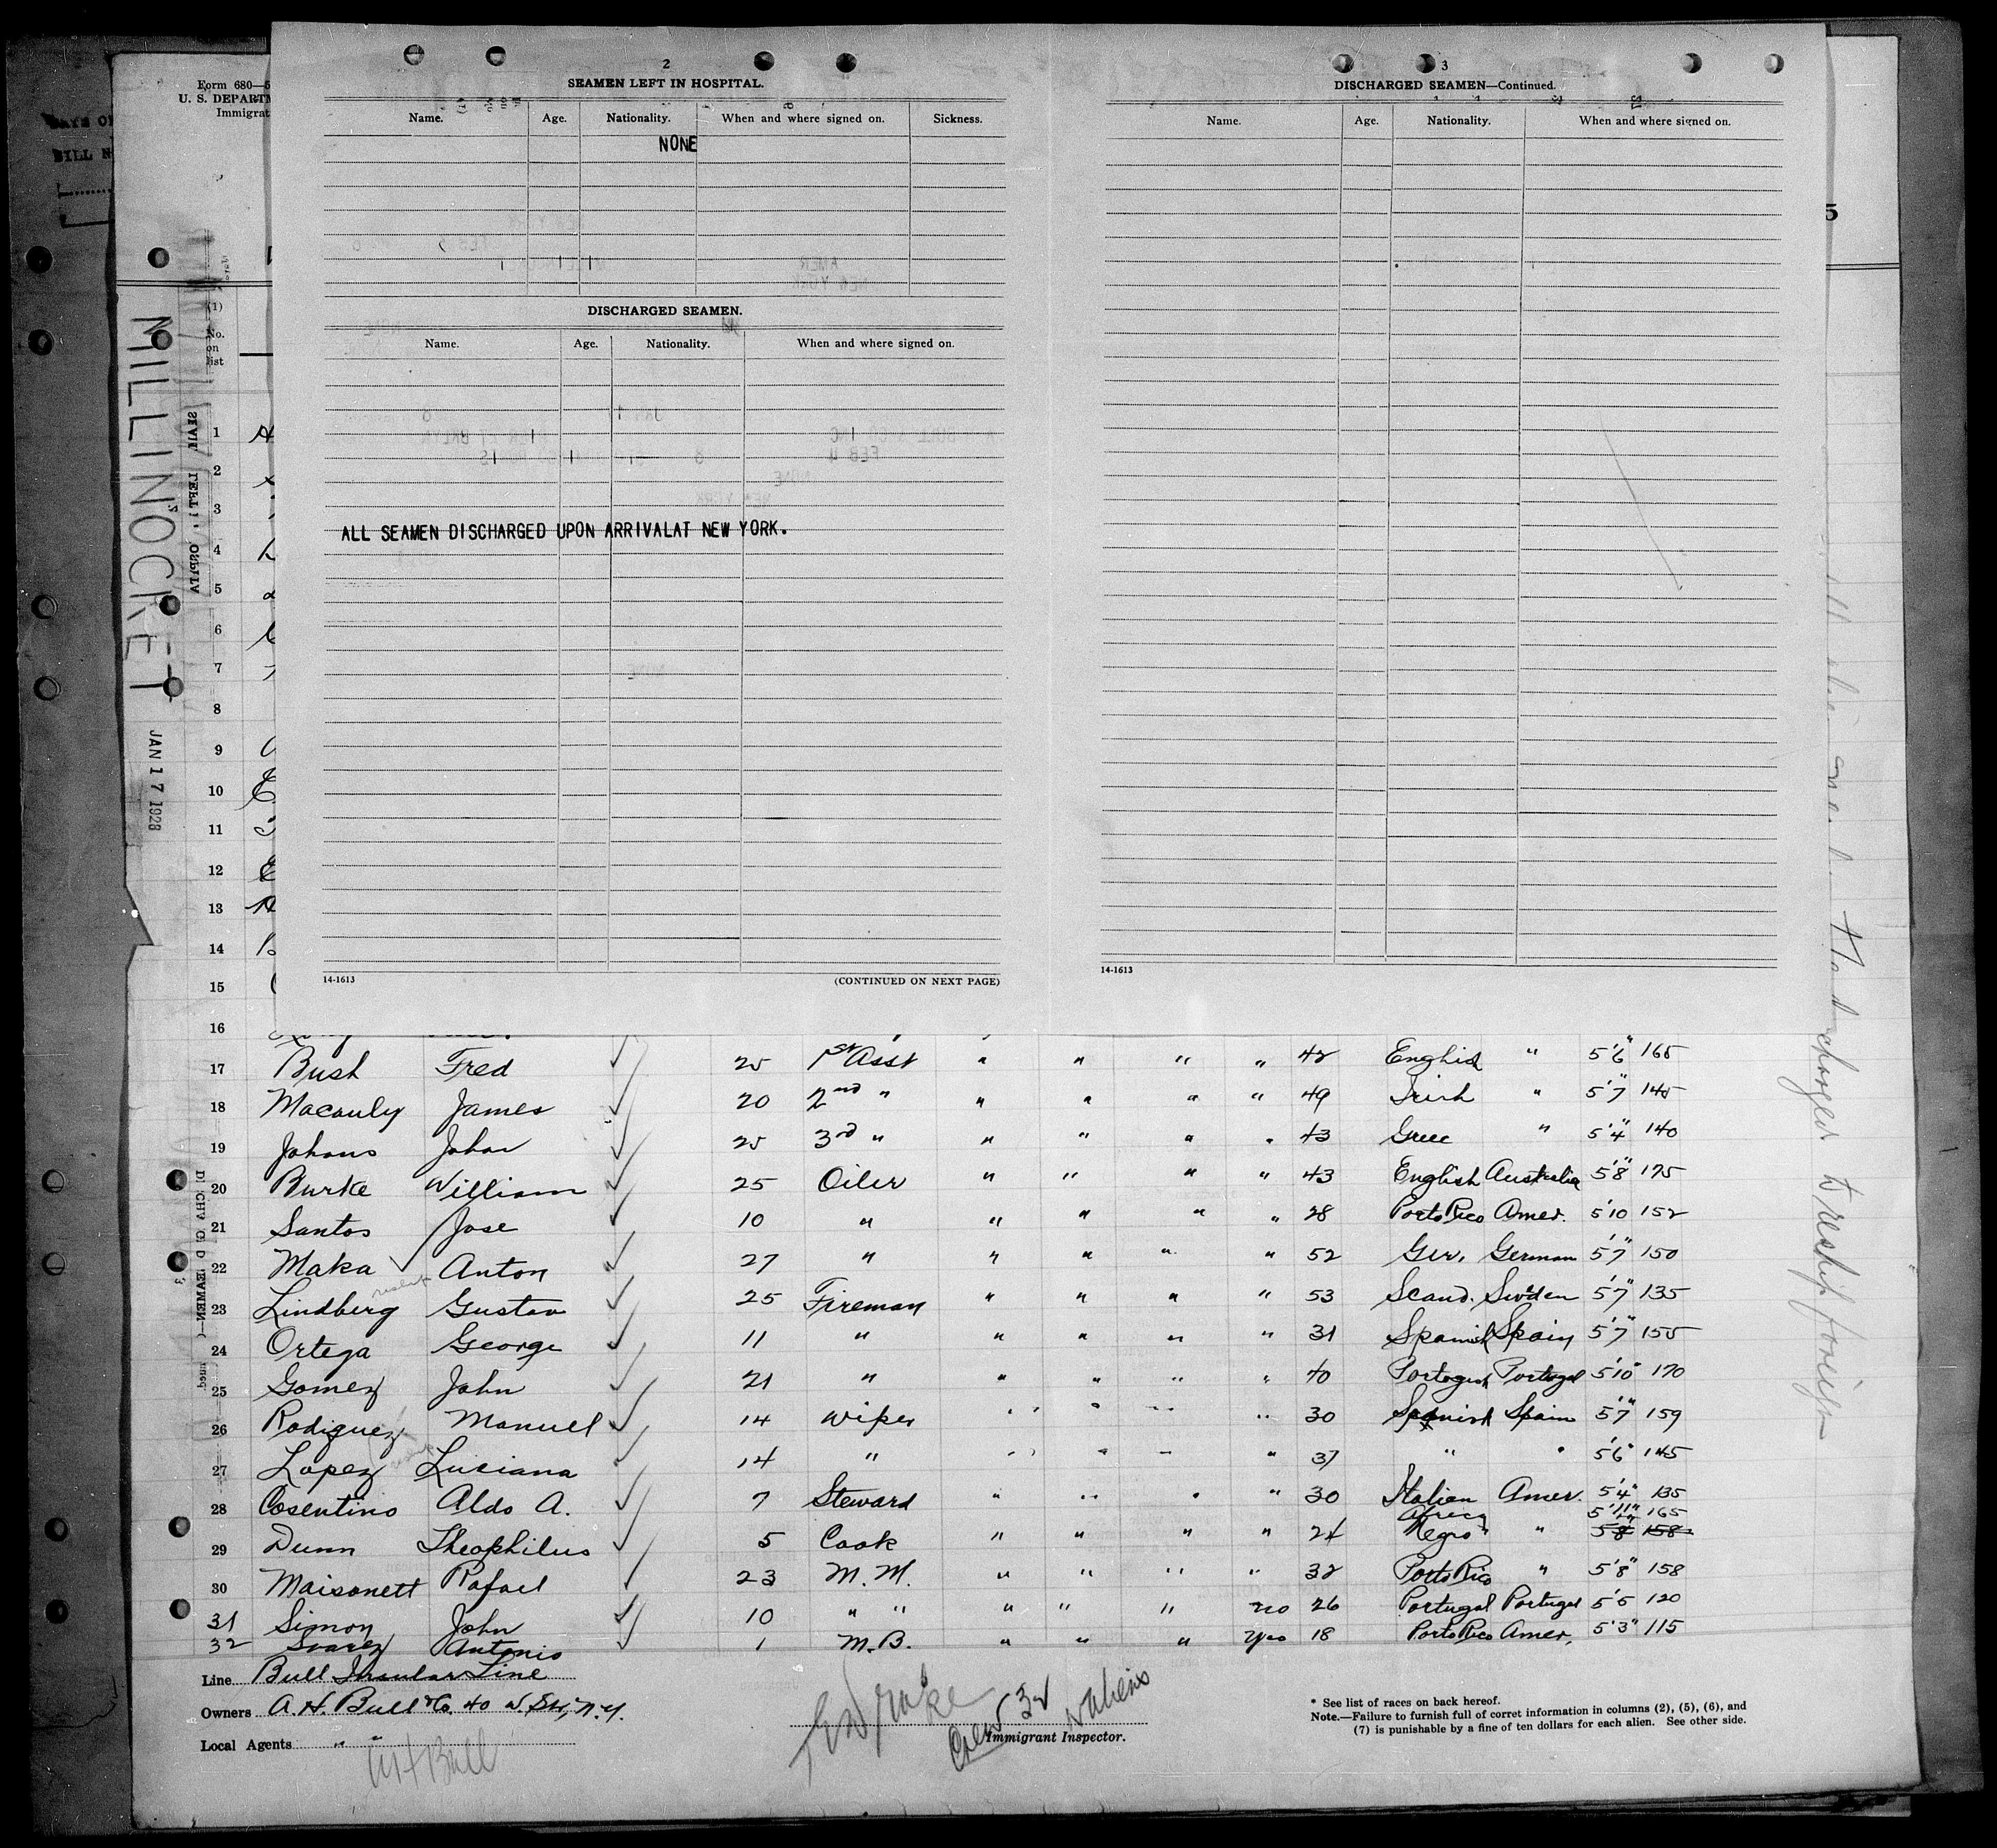 Form 680
U. S. DEPARTM
Immigrat
MILLINOCKET
JAN 17 1928
2
SEAMEN LEFT IN HOSPITAL.
Name. Age. Nationality. When and where signed on. Sickness.
NONE
DISCHARGED SEAMEN.
Name. Age. Nationality. When and where signed on.
ALL SEAMEN DISCHARGED UPON ARRIVALAT NEW YORK.
14-1613 (CONTINUED ON NEXT PAGE)
3
DISCHARGED SEAMEN—Continued.
Name. Age. Nationality. When and where signed on.
14-1613
5
(1)
No.
on
list
1
2
3
4
5
6
7
8
9
10
11
12
13
14
15
16
17 Bush Fred 25 1st Asst " " " " 42 English " 5'6" 165
18 Macauly James 20 2nd " " " " " 49 Irish " 5'7" 145
19 Johans Johan 25 3rd " " " " " 43 Greec " 5'4" 140
20 Burke William 25 Oiler " " " " 43 English Australia 5'8" 175
21 Santos Jose 10 " " " " " 28 Porto Rico Amer. 5'10 152
22 Maka Anton 27 " " " " " 52 Ger. German 5'7" 150
23 Lindberg Gustav 25 Fireman " " " " 53 Scand. Swden 5'7" 135
24 Ortega George 11 " " " " " 31 Spanish Spain 5'7" 155
25 Gomez John 21 " " " " " 40 Portogush Portugal 5'10" 170
26 Rodiguez Manuel 14 Wiper " " " " 30 Spanish Spain 5'7" 159
27 Lopez Luciana 14 " " " " " 37 " " 5'6" 145
28 Cosentino Aldo A. 7 Steward " " " " 30 Italian Amer. 5'4" 135
Africa 5'11" 165
29 Dunn Theophilus 5 Cook " " " " 24 Negro " 5'8" 158
30 Maisonett Rafael 23 M.M. " " " " 32 Porto Rico " 5'8" 158
31 Simon John 10 " " " " " no 26 Portugal Portugal 5'5 120
32 Suarez Antonio 1 M.B. " " " Yes 18 Porto Rico Amer. 5'3" 115
Line Bull Insular Line
Owners A. H. Bull & Co. 40 W. St., N.Y.
Local Agents " "
AH Bull
Crew 32
Immigrant Inspector.
* See list of races on back hereof.
Note.—Failure to furnish full of corret information in columns (2), (5), (6), and
(7) is punishable by a fine of ten dollars for each alien. See other side.